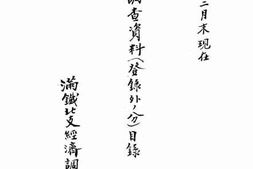 二月末現在
調查資料(登錄外ノ分)目錄
滿鐵北支經濟調